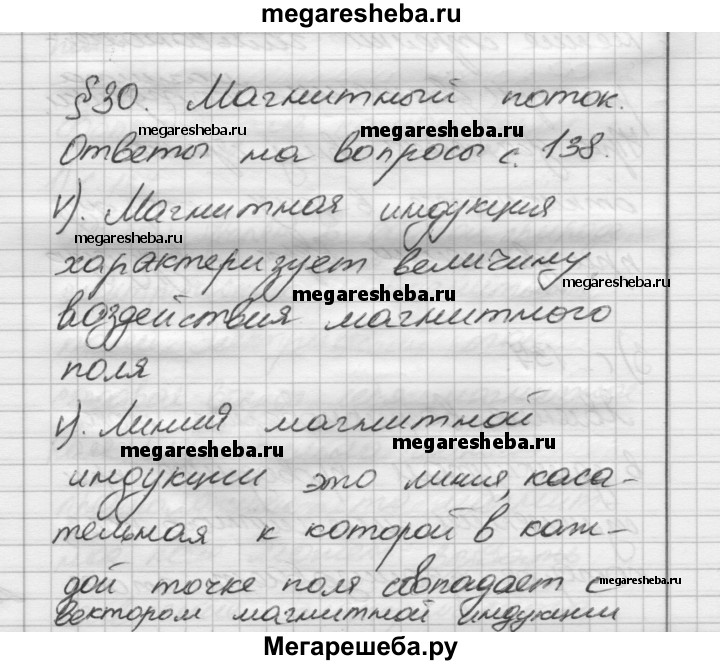 megaresheba.ru
§30. Магнитный поток.
megaresheba.ru
megaresheba.ru
Ответы на вопросы с. 138.
1). Магнитная индукция
megaresheba.ru
характеризует величину
megaresheba.ru
megaresheba.ru
воздействия магнитного
поля
1). Линия магнитной
megaresheba.ru
megaresheba.ru
индукции это линия, каса-
тельная к которой в каж-
дой точке поля совпадает с
megaresheba.ru
вектором магнитной индукции
Мегарешеба.ру